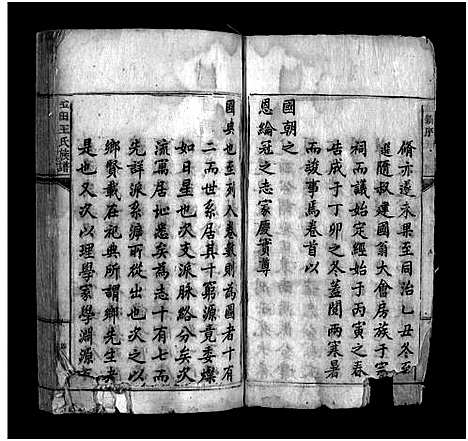 續序
脩亦遂未果至同治乙丑冬至
進隨叔建國翁大會房族于宗
祠而議始定經始于丙寅之春
告成于丁卯之冬蓋閱兩寒暑
而竣事焉卷首以
國朝之
恩綸冠之志家慶實尊
國典也至列入卷數則為圖者十有
二而世系居其十窮源竟委燦
如日星也次支派脉絡分矣次
流寓居址悉矣為志十有七而
先詳派系源所從出也次之以
鄉賢載在祀典所謂鄉先生者
是也又次以理學家學淵源
玉田王氏族譜